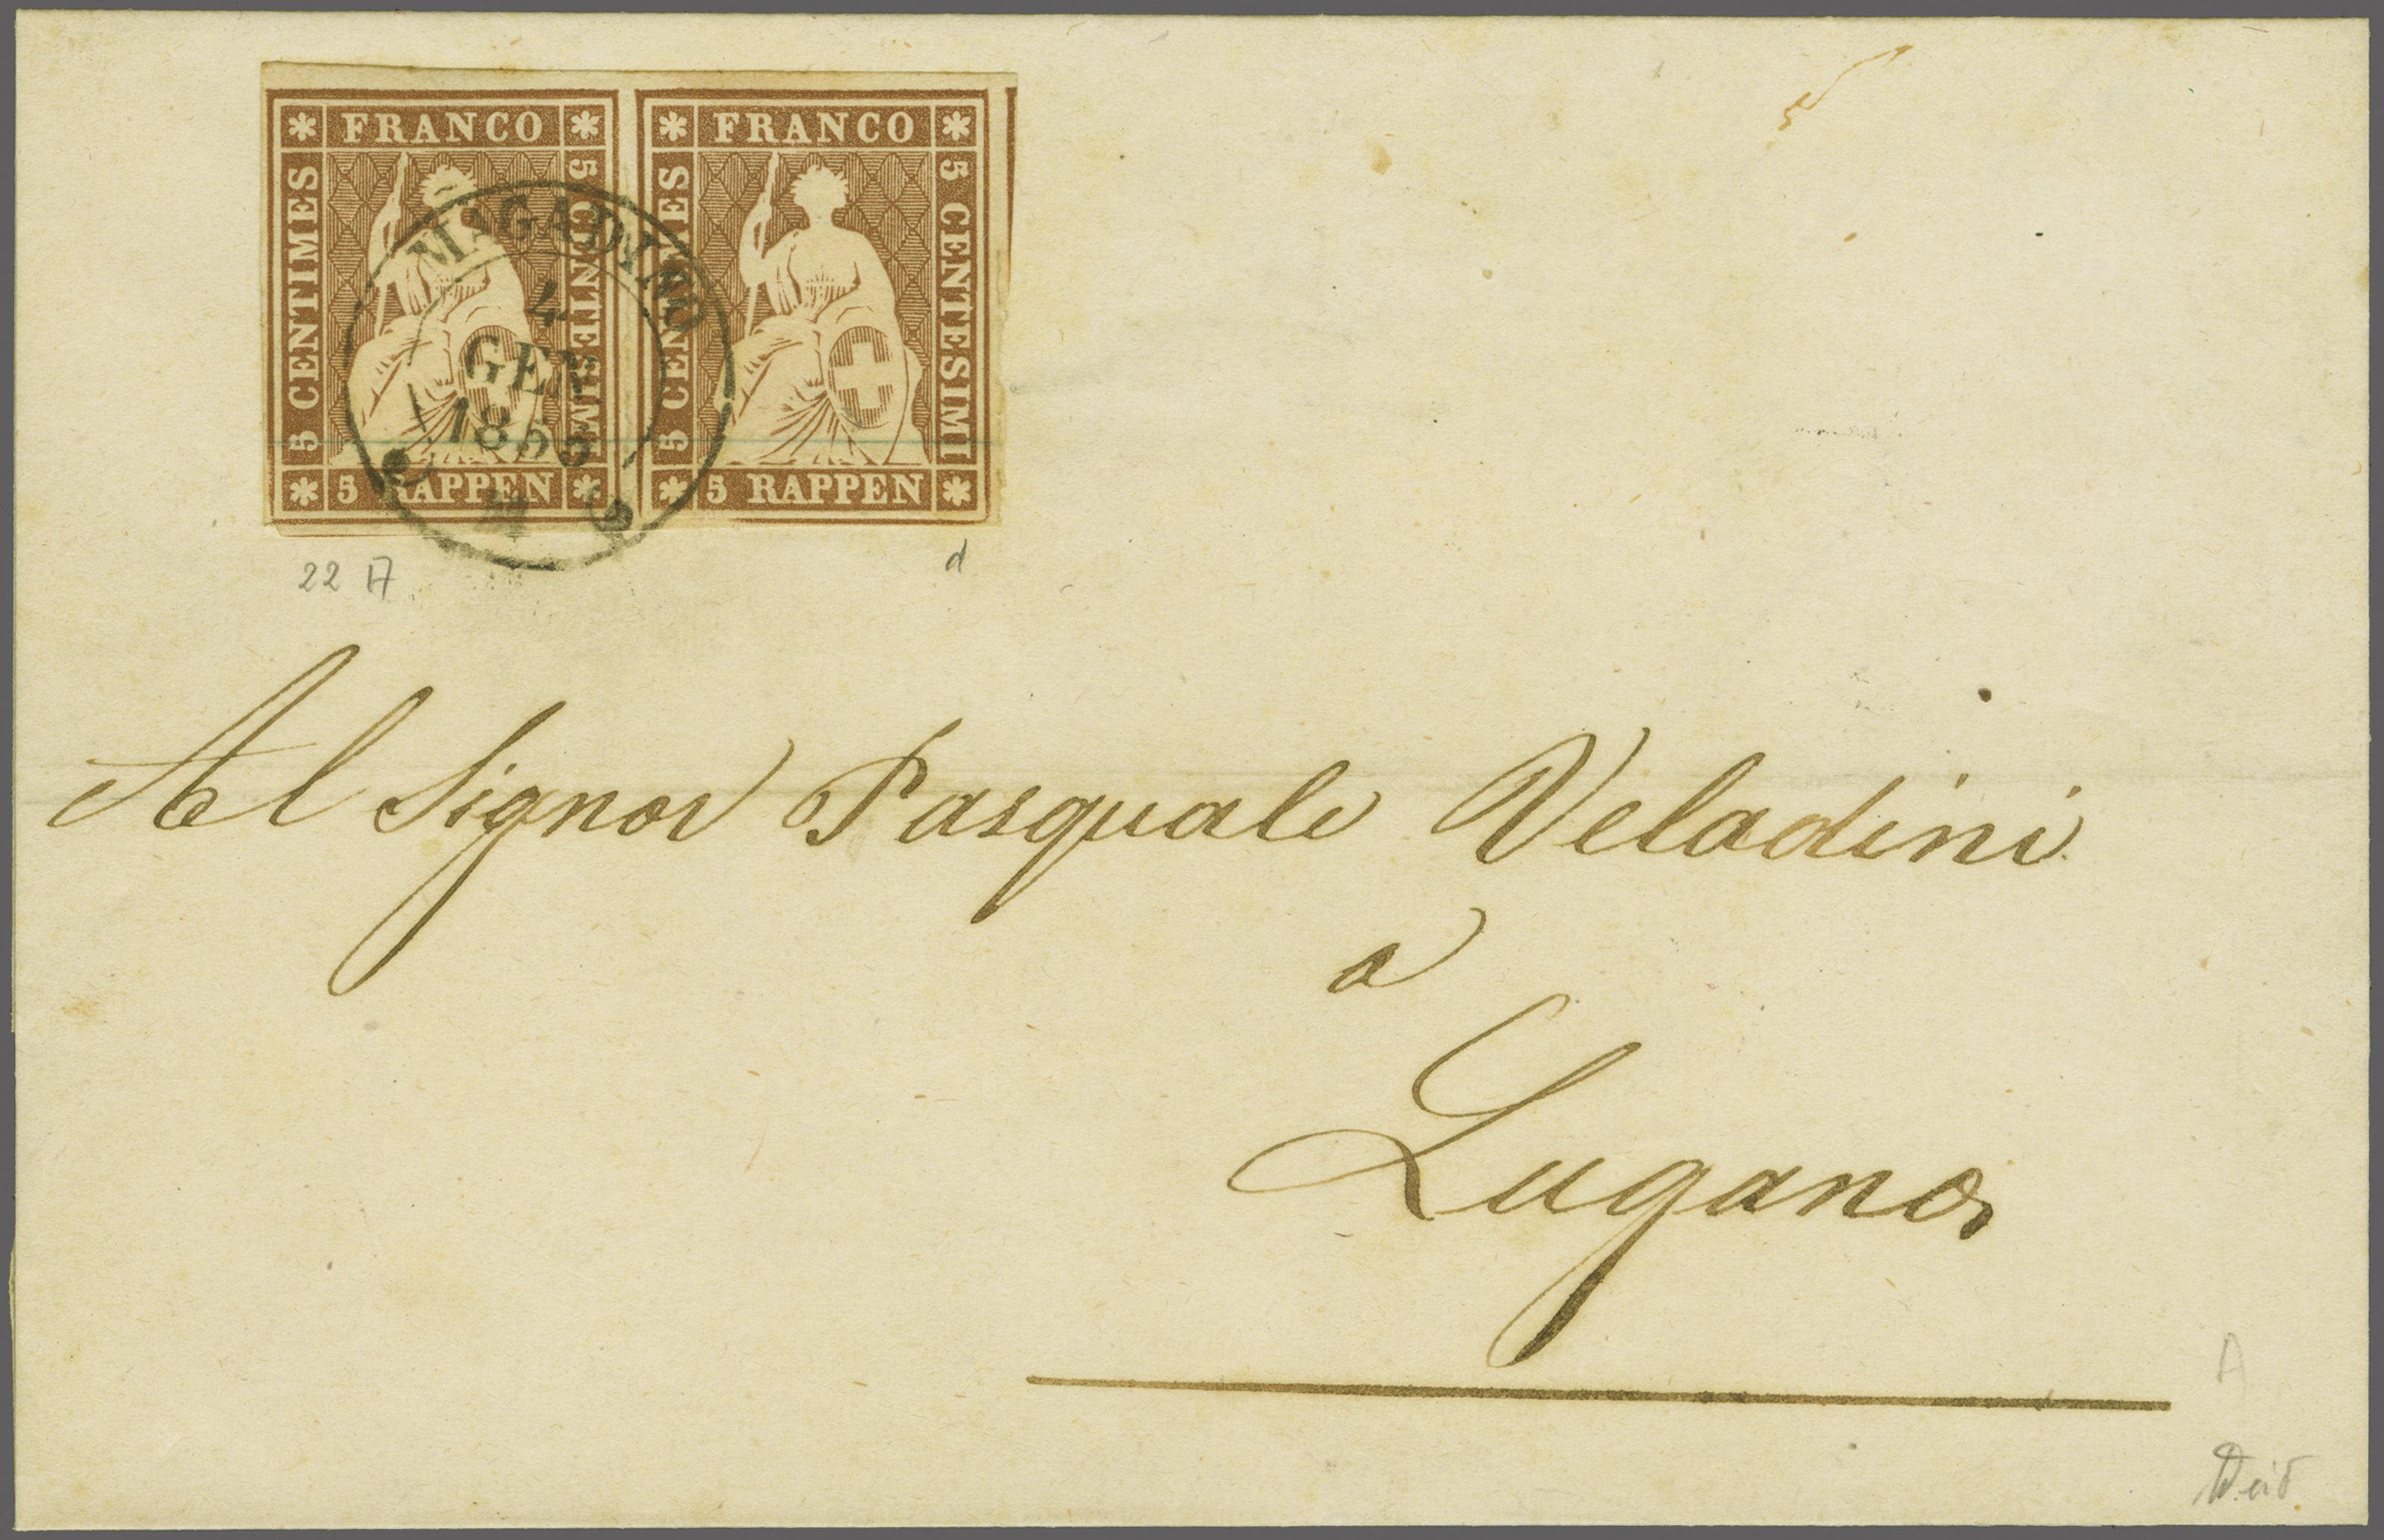 FRANCO
5 CENTIMES
5 CENTESIMI
5 RAPPEN
FRANCO
5 CENTIMES
5 CENTESIMI
5 RAPPEN
MAGADINO
4
GEN
1855
22 A
d
Al Signor Pasquale Veladini
a
Lugano
A